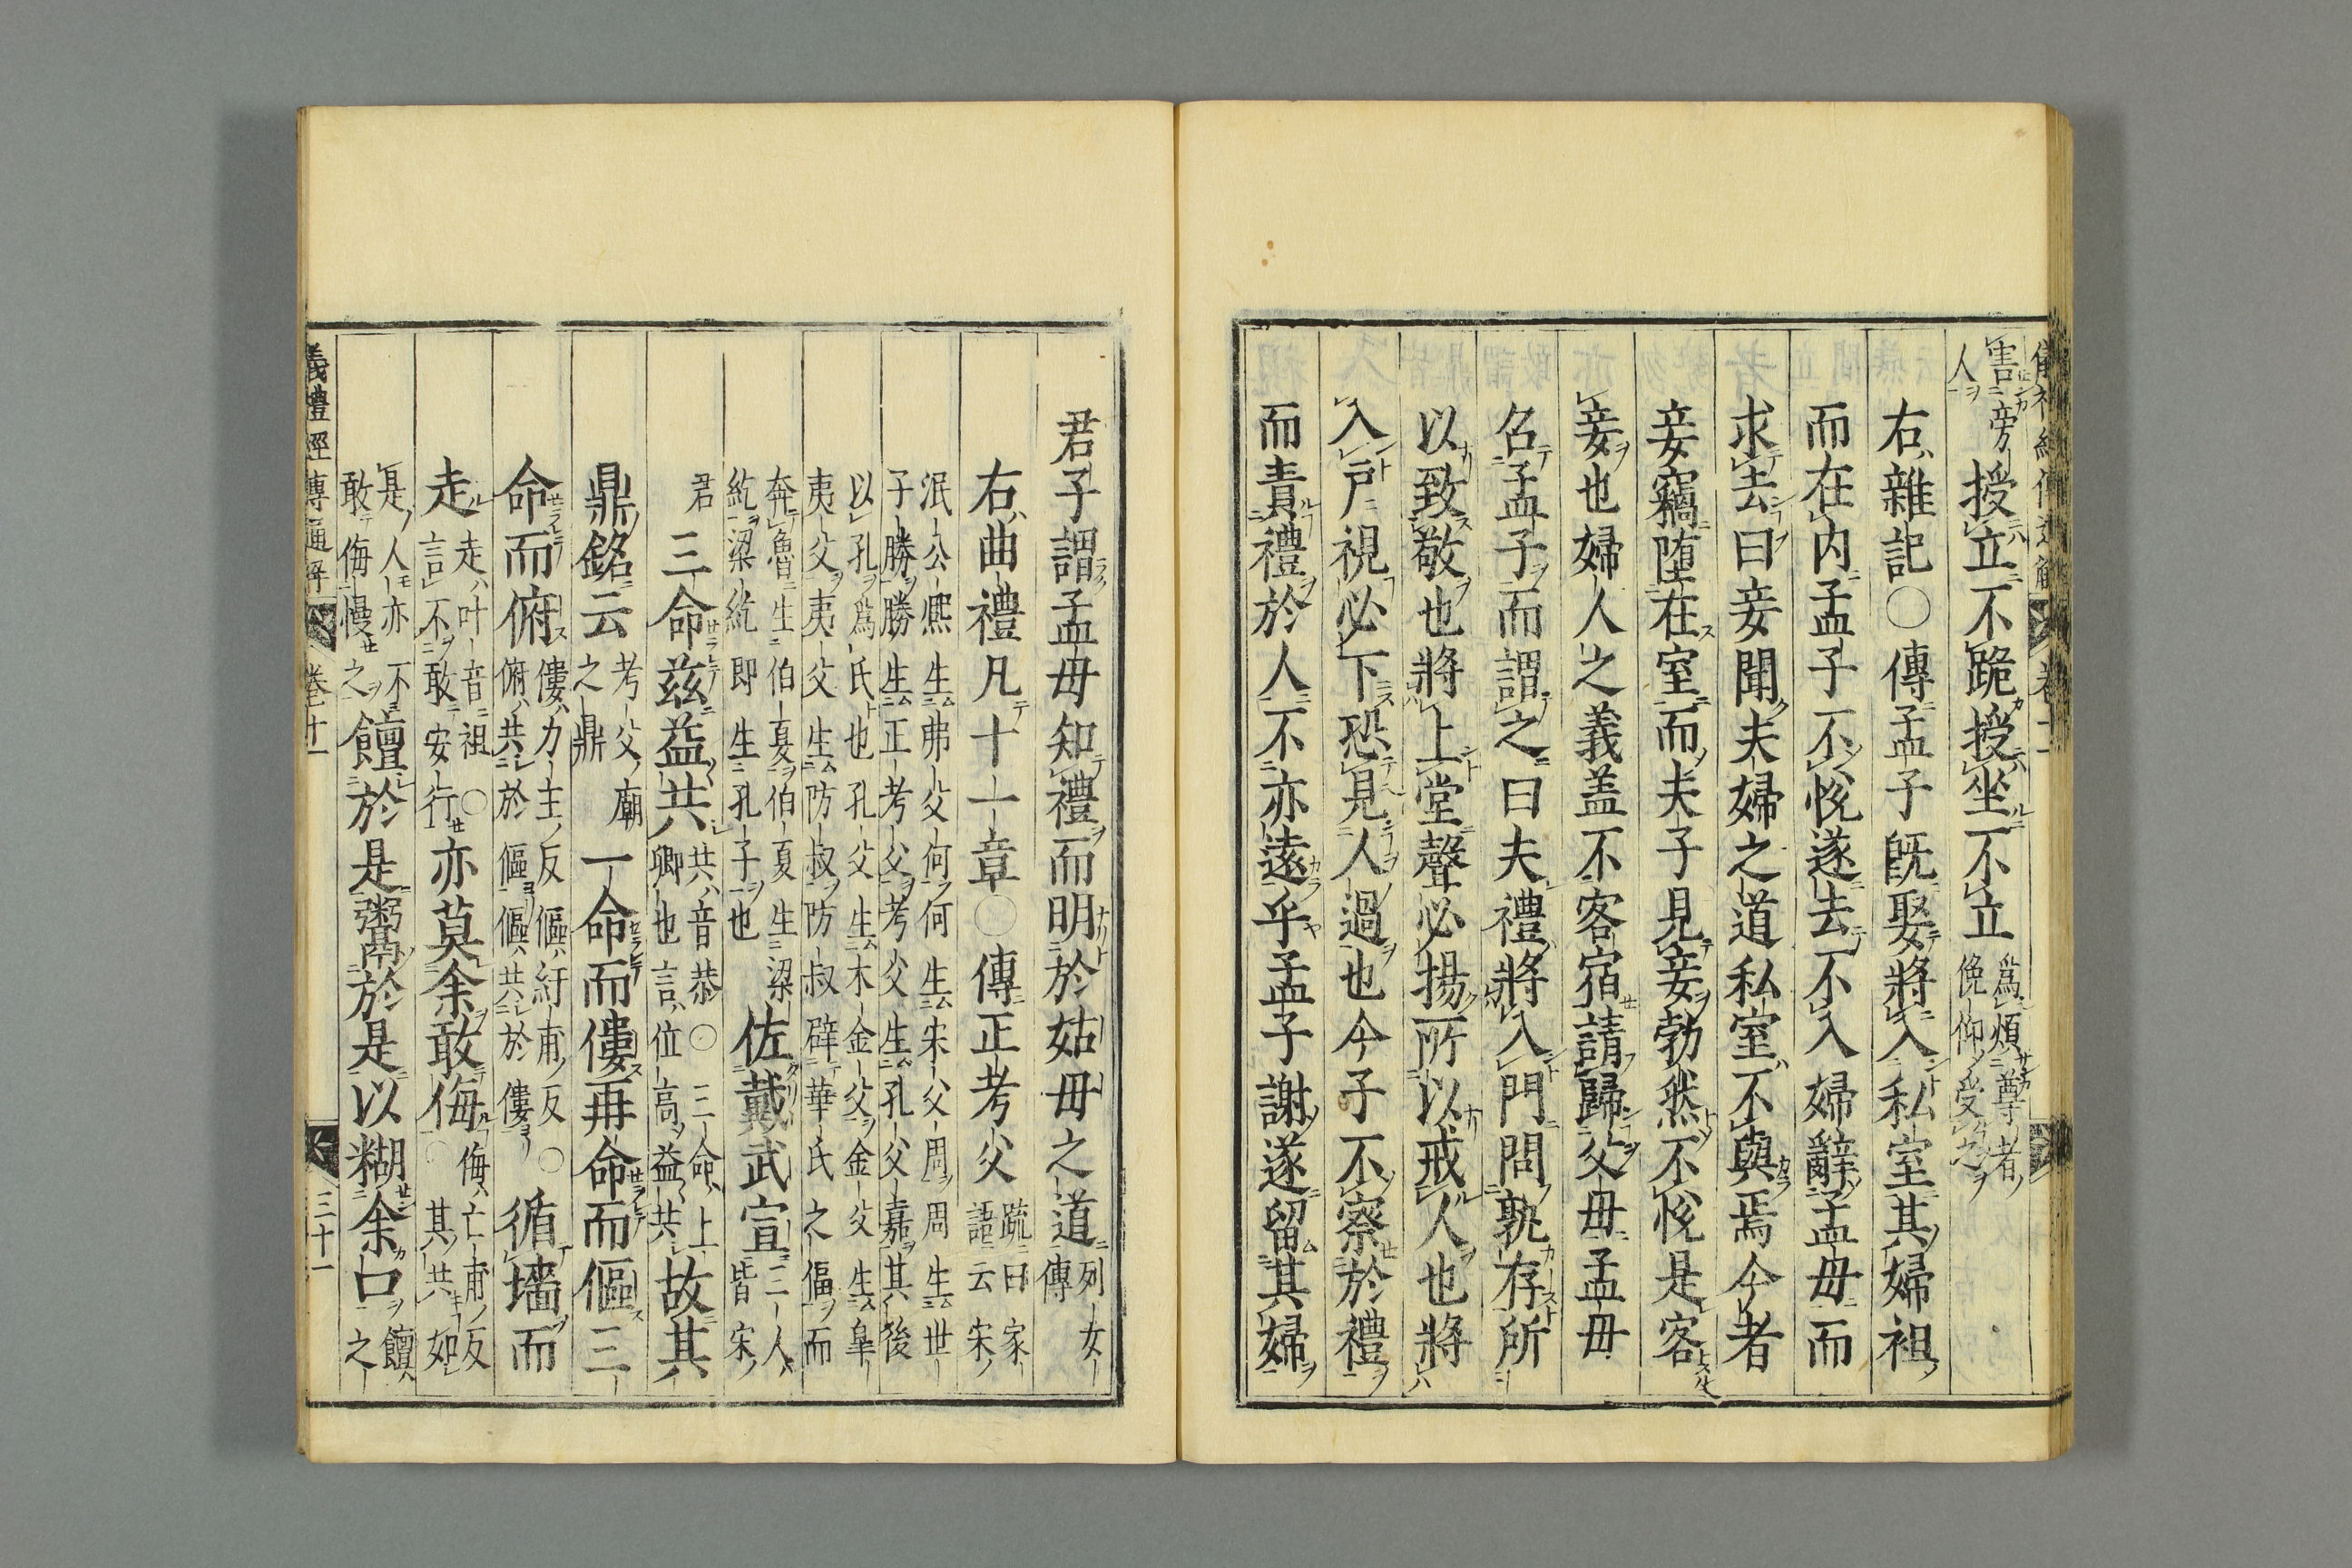 害旁
人
授立不跪授坐不立
爲煩尊者
俛仰受之
右雜記〇傳孟子既娶將入私室其婦袒
而在内孟子不悅遂去不入婦辭孟母而
求去曰妾聞夫婦之道私室不與焉今者
妾竊堕在室而夫子見妾勃然不悅是客
妾也婦人之義盖不客宿請歸父母孟母
召孟子而謂之曰夫禮將入門問孰存所
以致敬也將上堂聲必揚所以戒人也將
入戸視必下恐見人過也今子不察於禮
而責禮於人不亦遠乎孟子謝遂留其婦
君子謂孟母知禮而明於姑母之道
列女
傳
右曲禮凡十一章〇傳正考父
疏曰家
語云宋
泯公熈生弗父何何生宋父周周生世
子勝勝生正考父考父生孔父嘉其後
以孔爲氏也孔父生木金父金父生皐
夷父夷父生防叔防叔辟華氏之偪而
奔魯生伯夏伯夏生梁
紇梁紇即生孔子也
佐戴武宣
三人
皆宋
君
三命兹益共
共音恭〇三命上
卿也言位高益共
故其
鼎銘云
考父廟
之鼎
一命而僂再命而傴三
命而俯
僂力主反傴紆甫反〇
俯共於傴傴共於僂
循墻而
走
走叶音祖〇
言不敢安行
亦莫余敢侮
侮亡甫反
〇其共如
是人亦不
敢侮慢之
饘於是鬻於是以糊余口
饘
之
儀禮經傳通解
卷十一
三十一